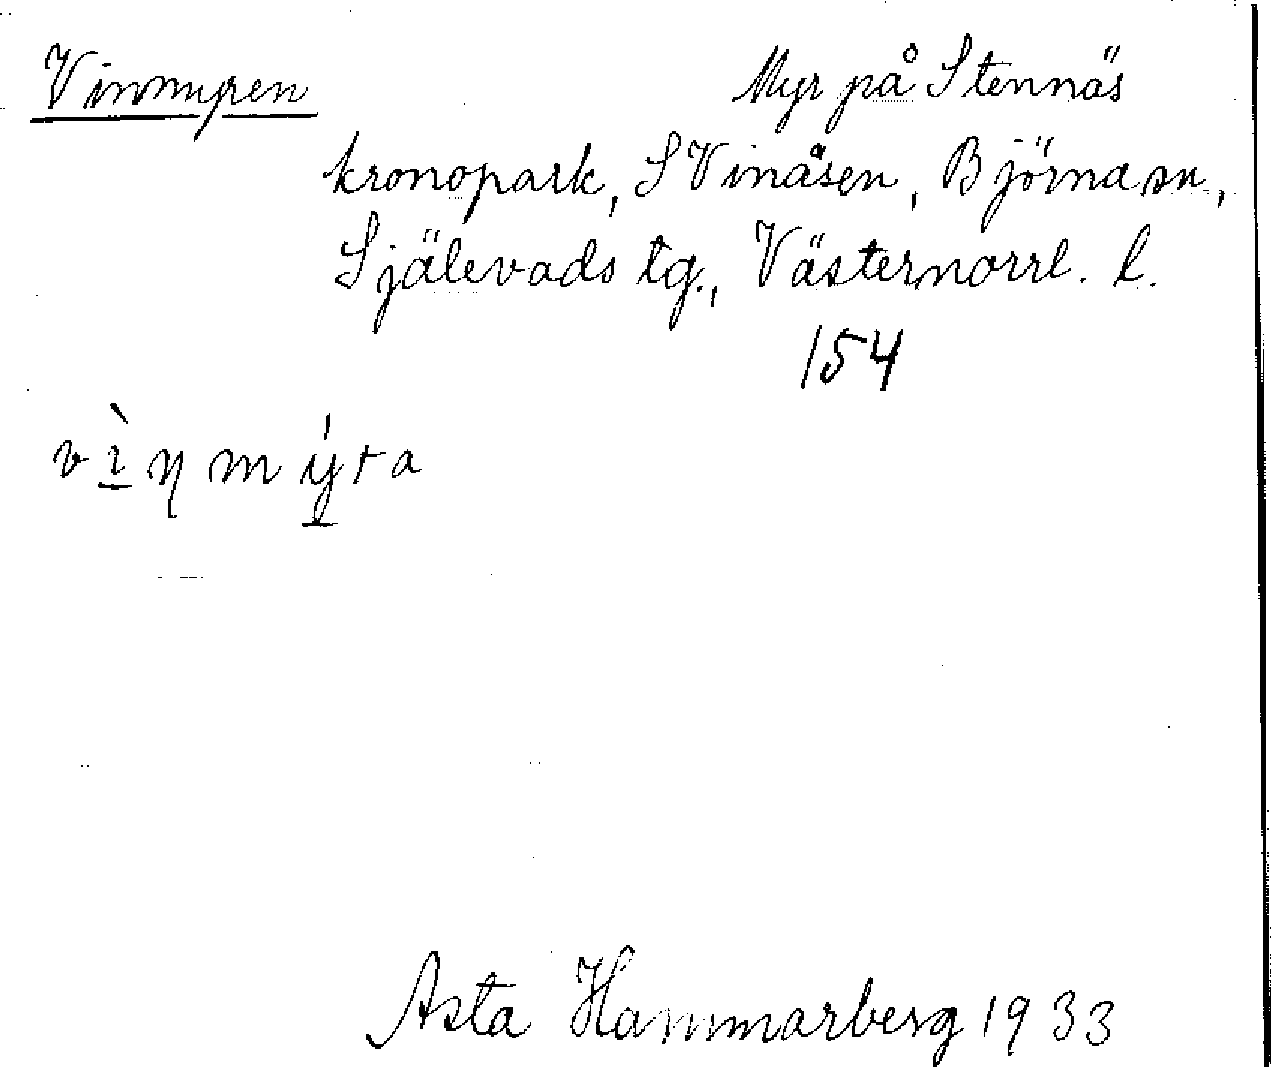 Vinmyren Myr på Stennäs
kronopark, S Vinåsen, Björna sn,
Själevads tg., Västernorrl. l.
154
vìn mýra
Asta Hammarberg 1933